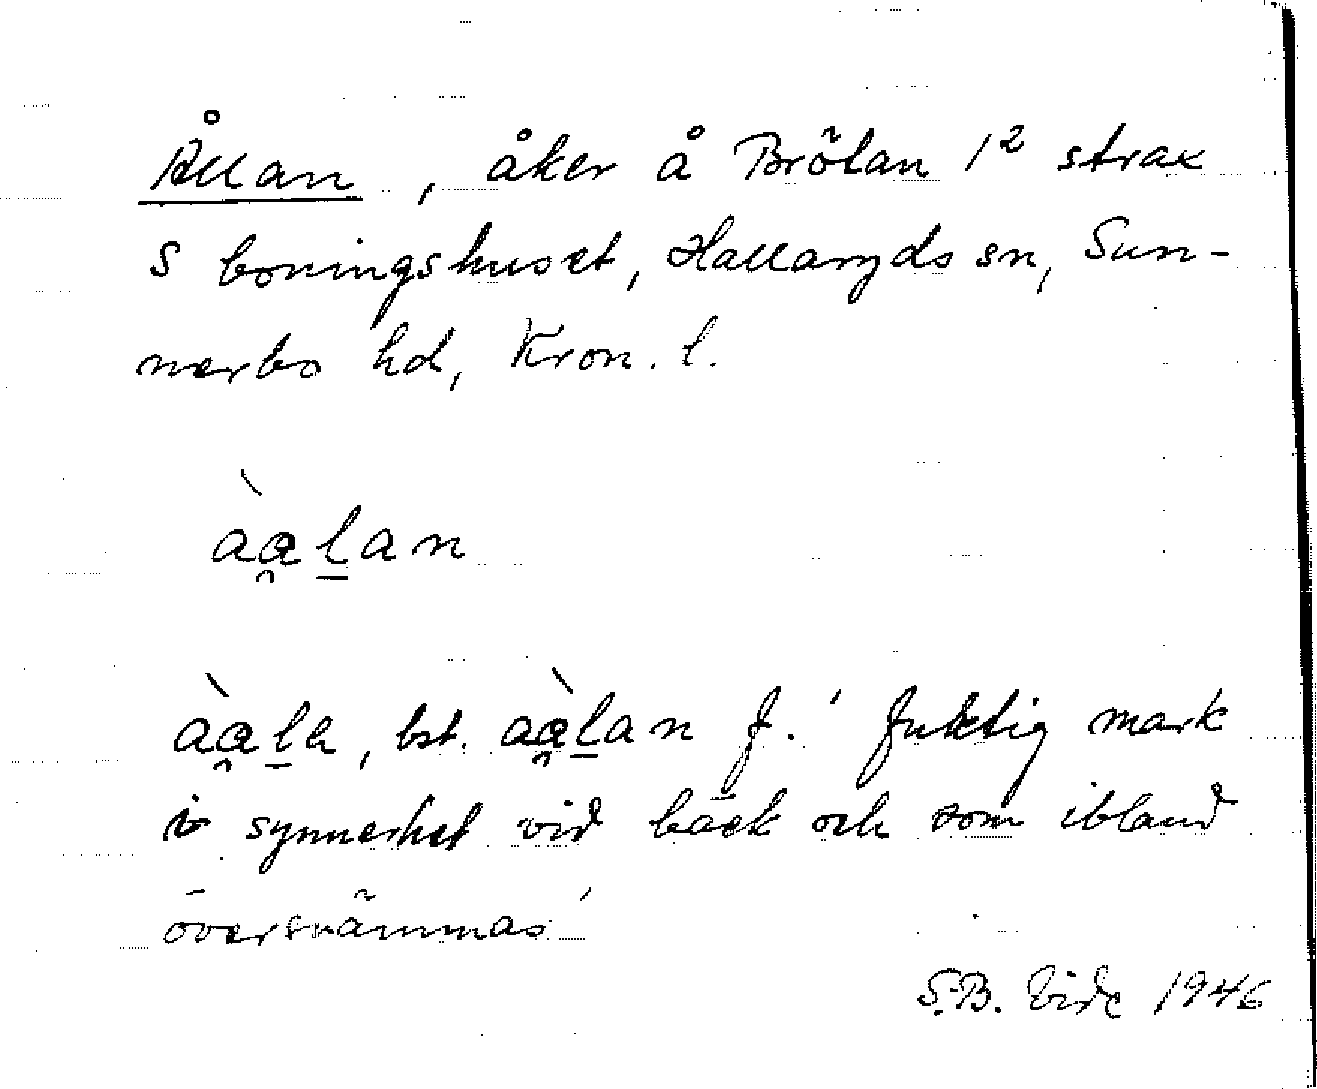 Ållan, åker å Brölan 1² strax
S boningshuset, Hallaryds sn, Sun-
nerbo hd, Kron. l.
àa̯l̠an
àa̯l̠a, bst. aà̯l̠an f. 'fuktig mark
i synnerhet vid bäck och som ibland
översvämmas'
S.B. Vide 1946